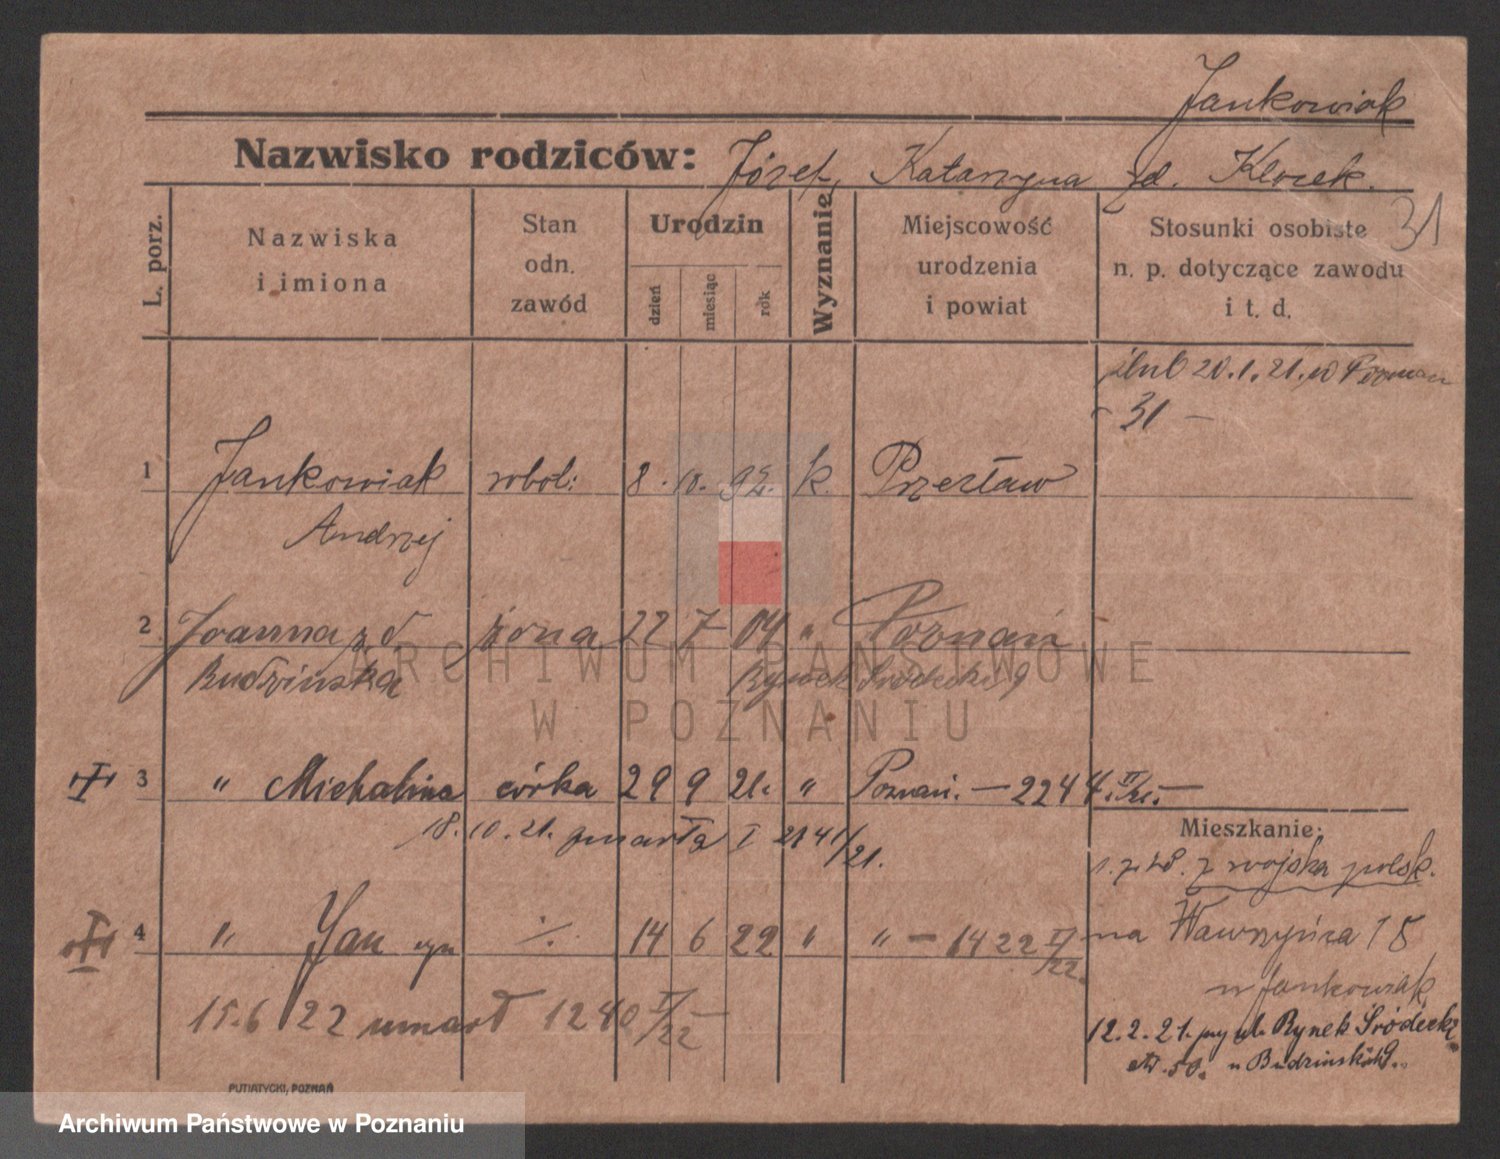 Jankowiak
Nazwisko rodziców: Józef, Katarzyna zd. Klocek.
31
L. porz.
Nazwiska
i imiona
Stan
odn.
zawód
Urodzin
dzień
miesiąc
rok
Wyznanie
Miejscowość
urodzenia
i powiat
Stosunki osobiste
n. p. dotyczące zawodu
i t. d.
ślub 20.1.21. w Poznan
- 31 -
1 Jankowiak robot: 8. 10. 92. k. Przecław
Andrzej
2 Joanna zd żona 22 7 04 " Poznań
Budzińska Rynek Śródecki 9
ARCHIWUM PAŃSTWOWE
W POZNANIU
3 " Michalina córka 29 9 21. " Poznań. - 2244. II/21. -
18. 10. 21. zmarła I 2141/21.
Mieszkanie:
z wojska polsk.
4 " Jan syn ./. 14 6 22 " " - 1422 II/22.
na Wawrzyńca 18
u Jankowiak
15.6 22 umarł 1240 II/22
12.2.21. ul. Rynek Śródecki
u Budzińskich 9.
PUTIATYCKI, POZNAŃ
Archiwum Państwowe w Poznaniu